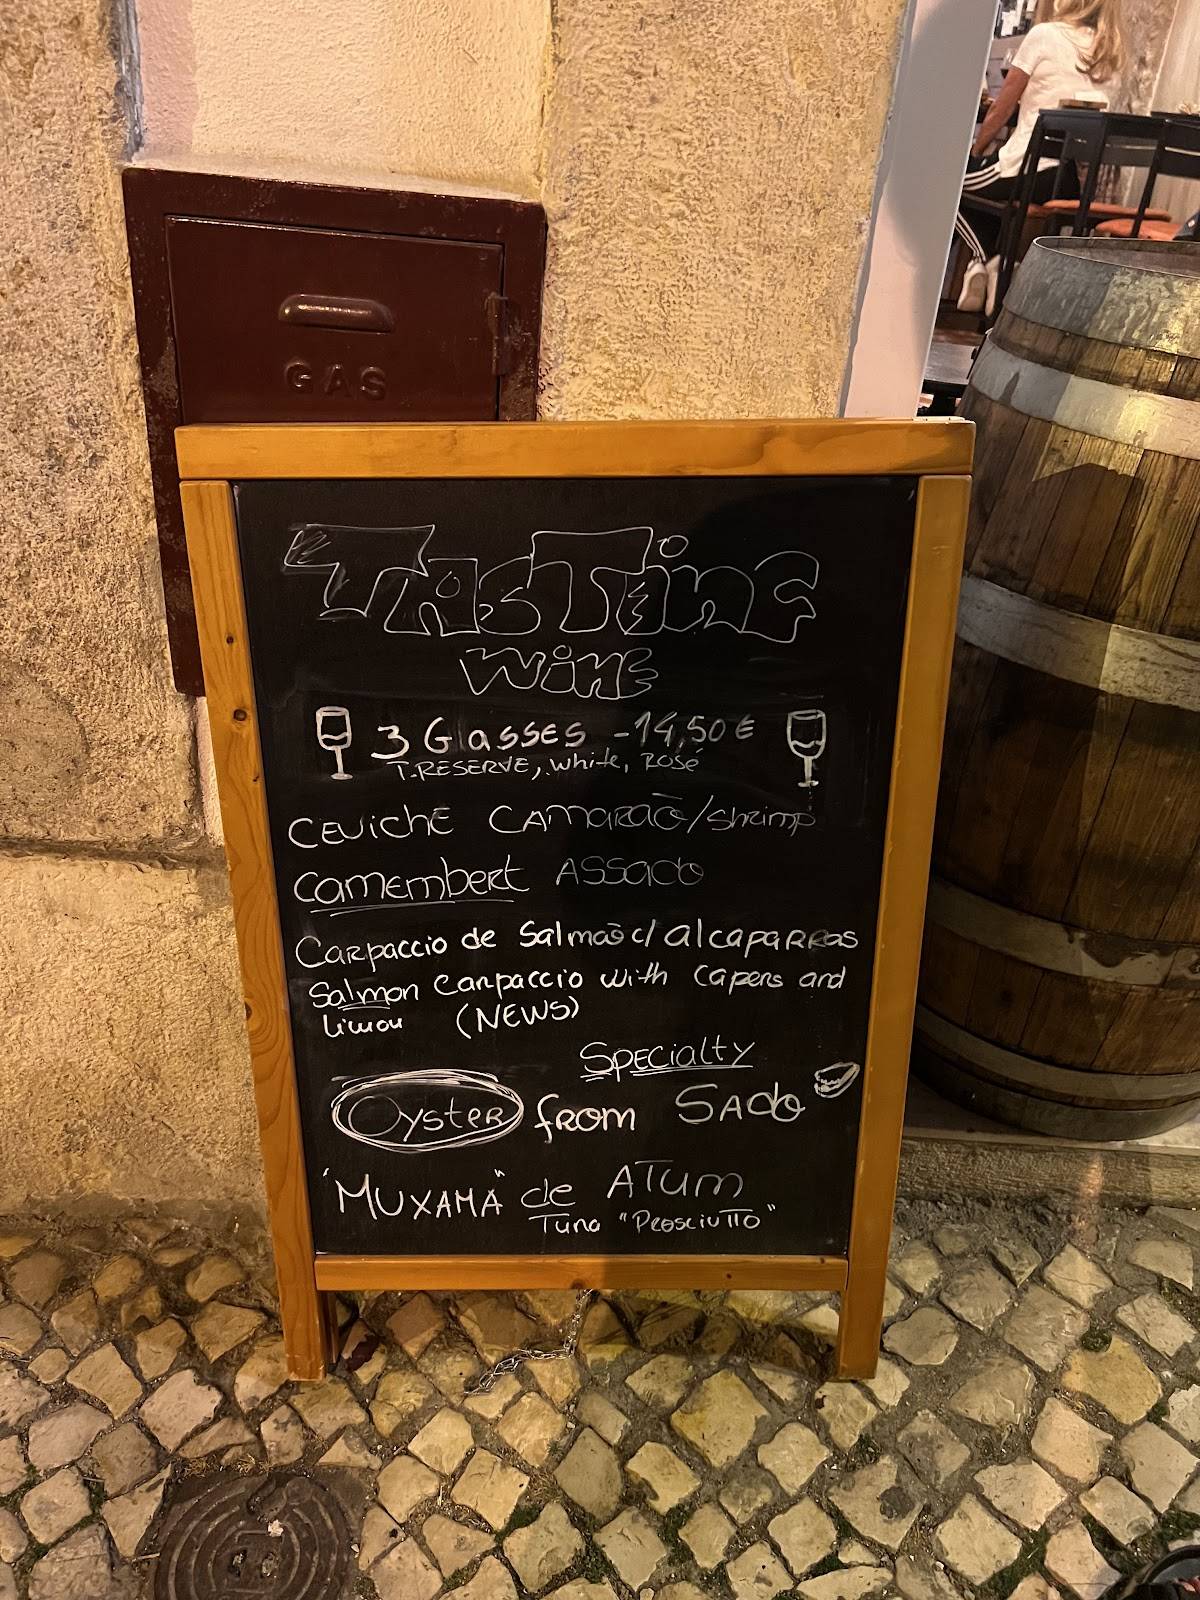 GAS
TASTING
WINE
3 GlASSES - 14,50 €
T.RESERVE, White, ROSÉ
CEVICHE CAMARÃO/Shrimp
Camembert ASSADO
Carpaccio de Salmão c/ alcaparras
Salmon Carpaccio with capers and
limou (NEWS)
Specialty
Oyster from SADO
"MUXAMA" de ATUM
Tuna "Prosciutto"